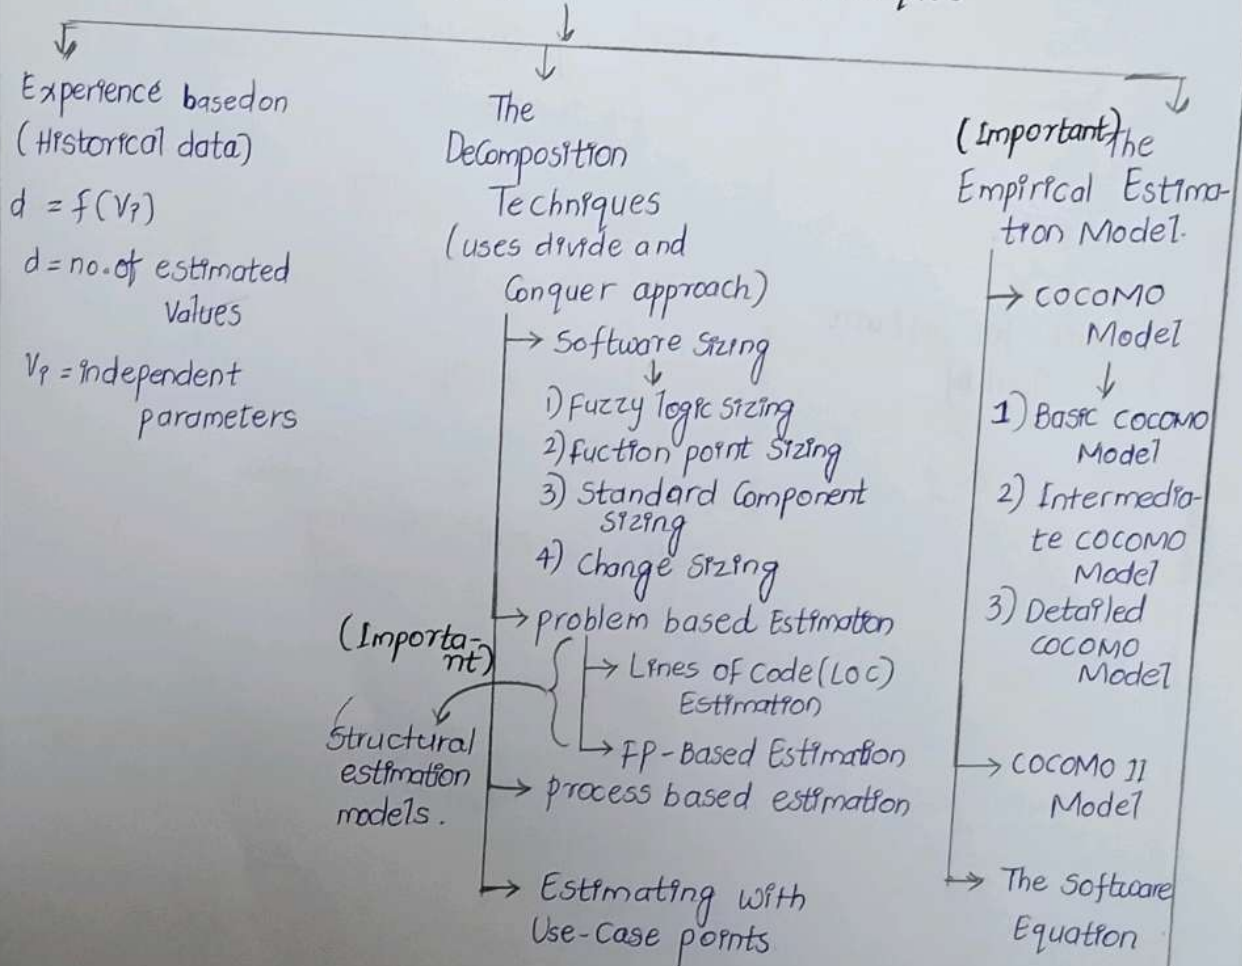 Experience based on
(Historical data)
d = f(Vi)
d = no. of estimated
Values
Vi = independent
parameters
The
Decomposition
Techniques
(uses divide and
Conquer approach)
→ Software Sizing
1) Fuzzy logic sizing
2) fuction point Sizing
3) Standard Component
Sizing
4) Change Sizing
→ problem based Estimation
(Importa-
nt)
→ Lines of Code (LOC)
Estimation
→ FP-Based Estimation
Structural
estimation
models.
→ process based estimation
→ Estimating with
Use-Case points
(Important) The
Empirical Estima-
tion Model.
→ COCOMO
Model
1) Basic COCOMO
Model
2) Intermedia-
te COCOMO
Model
3) Detailed
COCOMO
Model
→ COCOMO II
Model
→ The Software
Equation